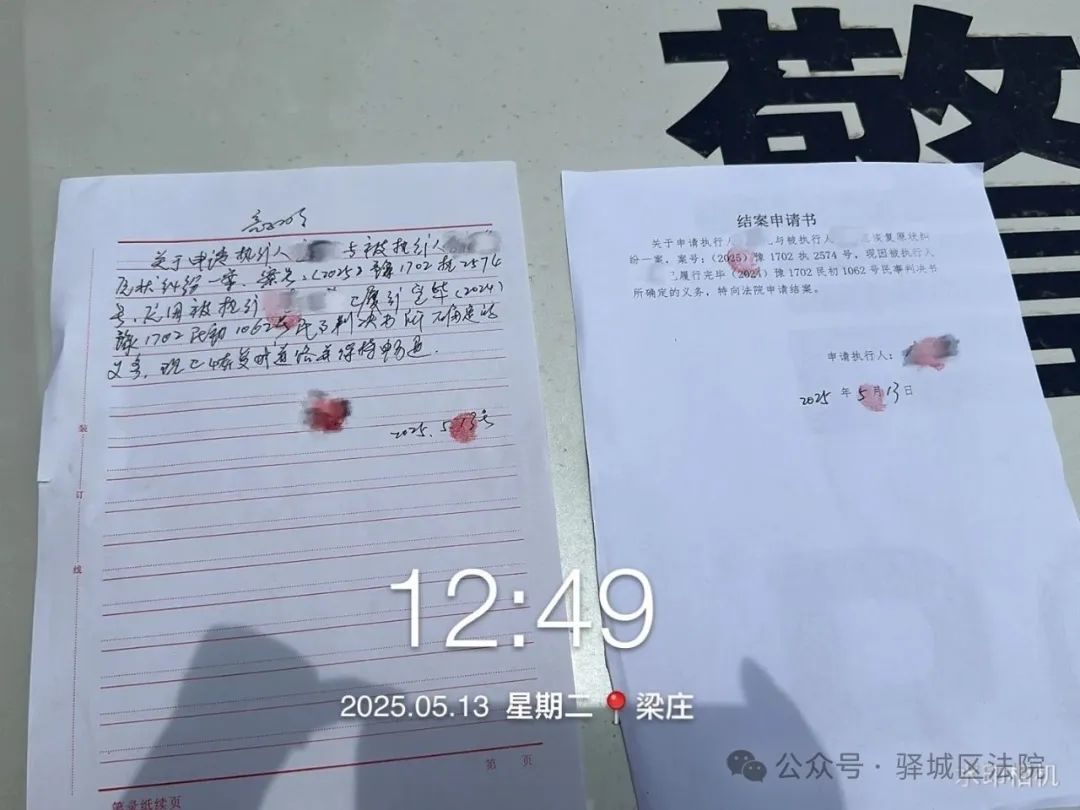 警
关于申请执行人 与被执行人
原状纠纷一案,案号:(2025)豫1702执2574
号,现因被执行 已履行完毕(2024)
豫1702民初1062号民事判决书所确定的
义务,现已恢复时道路并保持畅通.
2025.5.13号
装
订
线
第 页
笔录纸续页
结案申请书
关于申请执行人 与被执行人 恢复原状纠
纷一案,案号:(2025)豫 1702 执 2574 号,现因被执行人
已履行完毕(2024)豫 1702 民初 1062 号民事判决书
所确定的义务,特向法院申请结案。
申请执行人:
2025 年 5 月 13 日
12:49
2025.05.13 星期二 梁庄
公众号 · 驿城区法院
水印相机